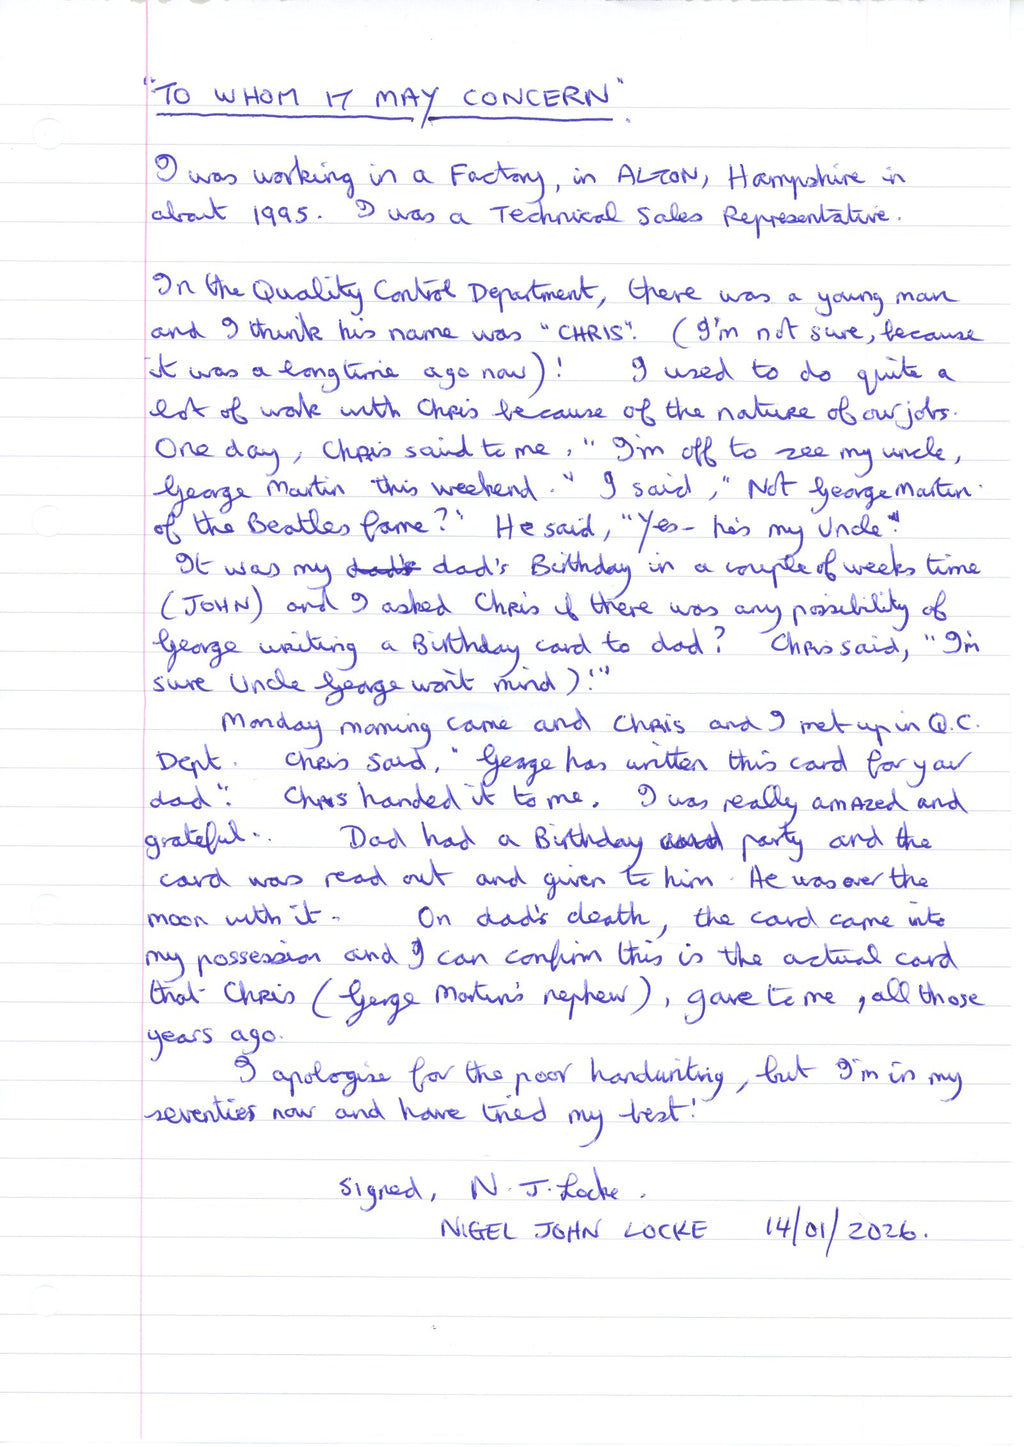 "TO WHOM IT MAY CONCERN".
I was working in a Factory, in ALTON, Hampshire in
about 1995. I was a Technical Sales Representative.
In the Quality Control Department, there was a young man
and I think his name was "CHRIS". (I'm not sure, because
it was a long time ago now)! I used to do quite a
lot of work with Chris because of the nature of our jobs.
One day, Chris said to me, "I'm off to see my uncle,
George Martin this weekend." I said, "Not George Martin
of the Beatles fame?" He said, "Yes - he's my Uncle".
It was my dad's dad's Birthday in a couple of weeks time
(JOHN) and I asked Chris if there was any possibility of
George writing a Birthday card to dad? Chris said, "I'm
sure Uncle George won't mind)!"
Monday morning came and Chris and I met up in Q.C.
Dept. Chris said, "George has written this card for your
dad". Chris handed it to me. I was really amazed and
grateful.. Dad had a Birthday card party and the
card was read out and given to him. He was over the
moon with it. On dad's death, the card came into
my possession and I can confirm this is the actual card
that Chris (George Martin's nephew), gave to me, all those
years ago.
I apologise for the poor handwriting, but I'm in my
seventies now and have tried my best!
Signed, N. J. Locke.
NIGEL JOHN LOCKE 14/01/2026.